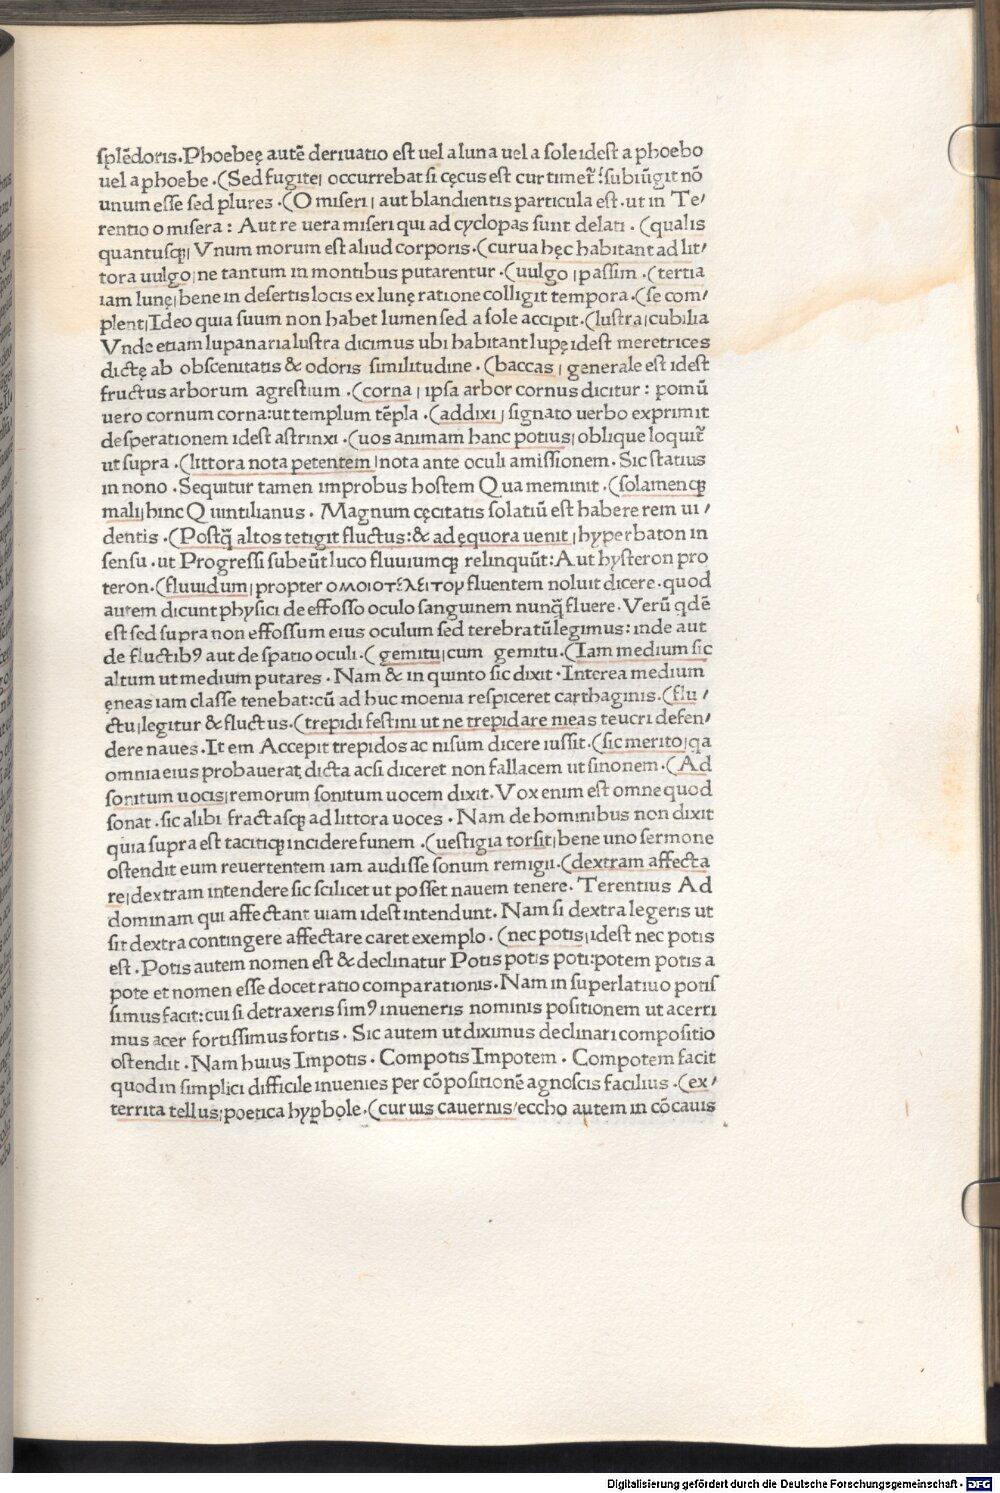 ſplēdoris.Phoebeę autē deriuatio eſt uel a luna uel a ſole idest a phoebo
uel a phoebe .(Sed fugite| occurrebat ſi cęcus est cur timet̃:ſubiūgit nō
unum eſſe ſed plures .(O miſeri| aut blandientis particula est .ut in Te/
rentio o miſera : Aut re uera miſeri qui ad cyclopas ſunt delati . (qualis
quantuſq;| Vnum morum eſt aliud corporis.(curua hęc habitant ad lit/
tora uulgo|ne tantum in montibus putarentur .(uulgo |paſſim .(tertia
iam lunę|bene in deſertis locis ex lunę ratione colligit tempora .(ſe com/
plent|Ideo quia ſuum non habet lumen ſed a ſole accipit.(luſtra|cubilia
Vnde etiam lupanaria luſtra dicimus ubi habitant lupę idest meretrices
dictę ab obſcenitatis & odoris ſimilitudine . (baccas | generale est idest
fructus arborum agreſtium .(corna | ipſa arbor cornus dicitur : pomū
uero cornum corna:ut templum tēpla .(addixi| ſignato uerbo exprimit
deſperationem idest aſtrinxi .(uos animam hanc potius|oblique loquit̃
ut ſupra .(littora nota petentem |nota ante oculi amiſſionem. Sic ſtatius
in nono .Sequitur tamen improbus hoſtem Qua meminit .(ſolamenq;
mali|hinc Quintilianus . Magnum cęcitatis ſolatiū est habere rem ui /
dentis .(Poſtq̄ altos tetigit fluctus:& ad ęquora uenit |hyperbaton in
ſenſu .ut Progreſſi ſubeūt luco fluuiumq; relinquūt: Aut hyſteron pro
teron.(fluuidum|propter ομοιοτελειτον fluentem noluit dicere .quod
autem dicunt phyſici de effoſſo oculo ſanguinem nunq̄ fluere. Verū qdē
est ſed ſupra non effoſſum eius oculum ſed terebratū legimus: inde aut
de fluctibꝯ aut de ſpatio oculi .(gemitu|cum gemitu.(Iam medium ſic
altum ut medium putares .Nam & in quinto ſic dixit .Interea medium
ęneas iam claſſe tenebat:cū ad huc moenia reſpiceret carthaginis.(flu /
ctu|legitur & fluctus.(trepidi feſtini ut ne trepidare meas teucri defen/
dere naues.Item Accepit trepidos ac niſum dicere iuſſit.(ſic merito|qa
omnia eius probauerat dicta acſi diceret non fallacem ut ſinonem.(Ad
ſonitum uocis|remorum ſonitum uocem dixit.Vox enim est omne quod
ſonat .ſic alibi fractaſq; ad littora uoces . Nam de hominibus non dixit
quia ſupra est taciti q; incidere funem .(ueſtigia torſit|bene uno ſermone
oſtendit eum reuertentem iam audiſſe ſonum remigii.(dextram affecta
re|dextram intendere ſic ſcilicet ut poſſet nauem tenere. Terentius Ad
dominam qui affectant uiam idest intendunt. Nam ſi dextra legeris ut
ſit dextra contingere affectare caret exemplo .(nec potis|idest nec potis
est .Potis autem nomen est & declinatur Potis potis poti:potem potis a
pote et nomen eſſe docet ratio comparationis.Nam in ſuperlatiuo potiſ
ſimus facit:cui ſi detraxeris ſimꝯ inueneris nominis poſitionem ut acerri
mus acer fortiſſimus fortis . Sic autem ut diximus declinari compoſitio
oſtendit .Nam huius Impotis .Compotis Impotem . Compotem facit
quod in ſimplici difficile inuenies per cōpoſitionē agnoſcis facilius .(ex/
territa tellus|poetica hyp̱bole.(curuis cauernis/eccho autem in cōcauis
Digitalisierung gefördert durch die Deutsche Forschungsgemeinschaft - DFG